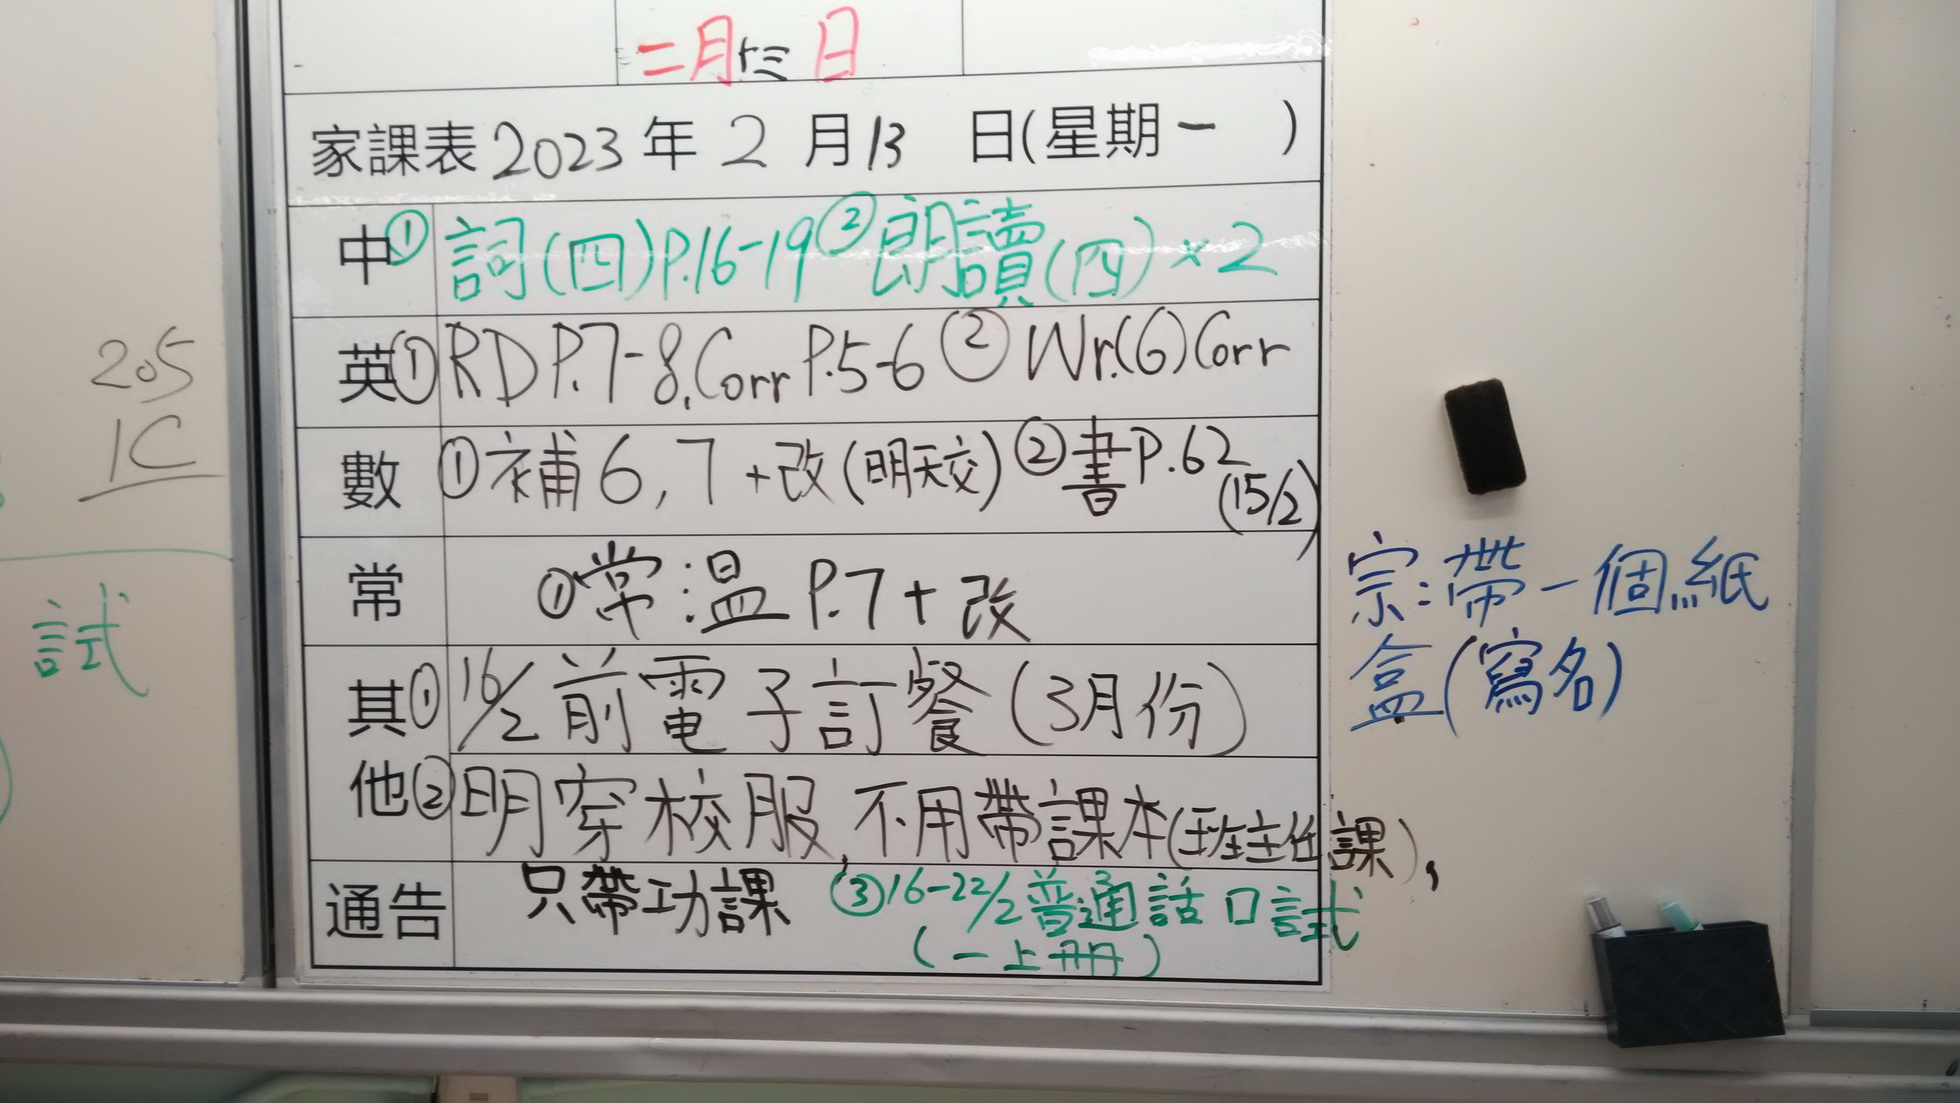 二月十三日
家課表2023年2月13日(星期一)
中①詞(四)P.16-19②朗讀(四)×2
英①RD P.7-8,Corr P.5-6②Wr.(6)Corr
數①補6,7+改(明天交)②書P.62
(15/2)
常①常:温P.7+改
其①16/2前電子訂餐(3月份)
他②明穿校服,不用帶課本(班主任課),
通告 只帶功課 ③16-22/2普通話口試
(一上冊)
宗:帶一個紙
盒(寫名)
205
1C
試